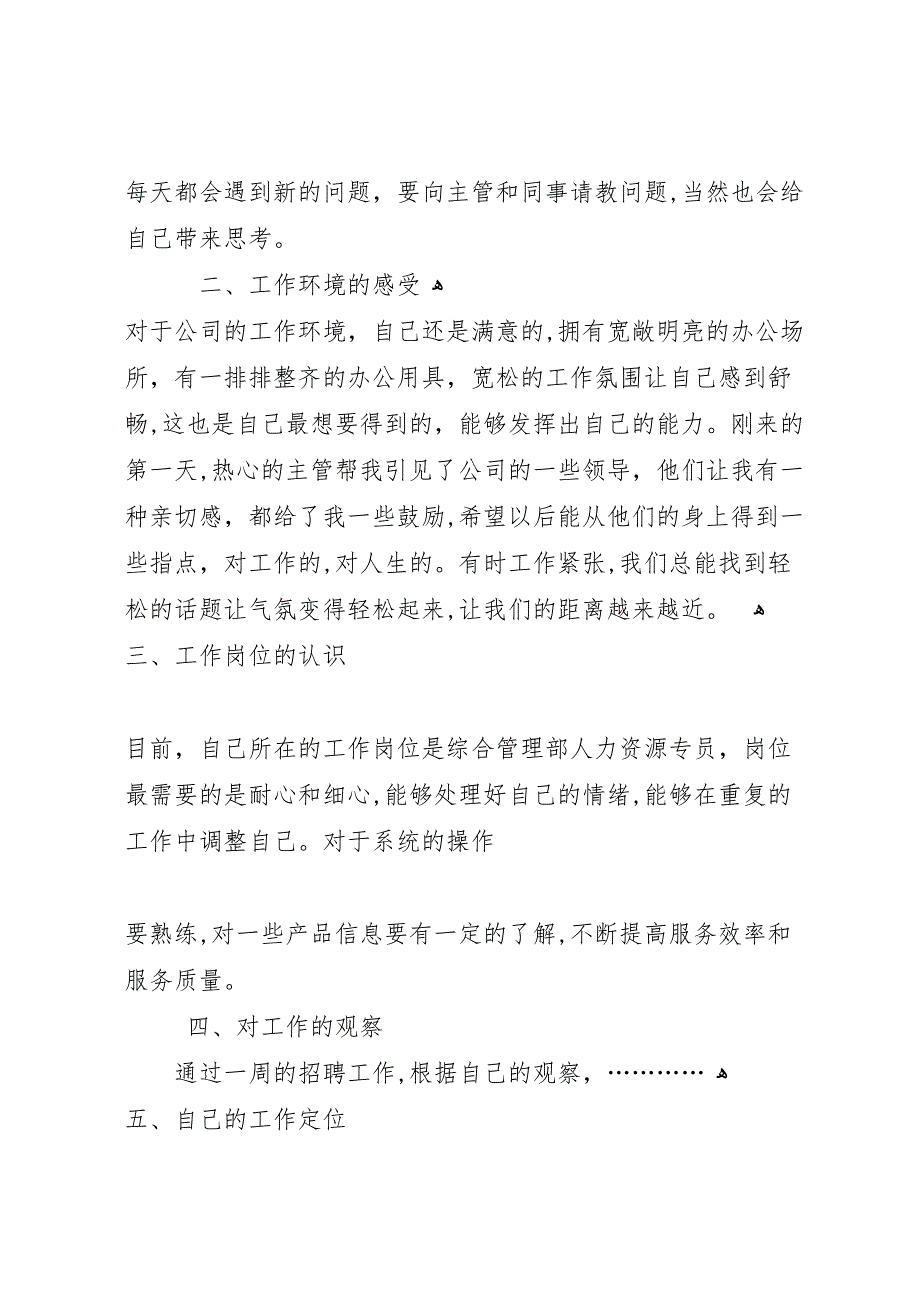 每天都会遇到新的问题，要向主管和同事请教问题,当然也会给
自己带来思考。
二、工作环境的感受 ﻫ
对于公司的工作环境，自己还是满意的,拥有宽敞明亮的办公场
所，有一排排整齐的办公用具，宽松的工作氛围让自己感到舒
畅,这也是自己最想要得到的，能够发挥出自己的能力。刚来的
第一天,热心的主管帮我引见了公司的一些领导，他们让我有一
种亲切感，都给了我一些鼓励,希望以后能从他们的身上得到一
些指点，对工作的,对人生的。有时工作紧张,我们总能找到轻
松的话题让气氛变得轻松起来,让我们的距离越来越近。 ﻫ
三、工作岗位的认识
目前，自己所在的工作岗位是综合管理部人力资源专员，岗位
最需要的是耐心和细心,能够处理好自己的情绪,能够在重复的
工作中调整自己。对于系统的操作
要熟练,对一些产品信息要有一定的了解,不断提高服务效率和
服务质量。
四、对工作的观察
通过一周的招聘工作,根据自己的观察，………… ﻫ
五、自己的工作定位